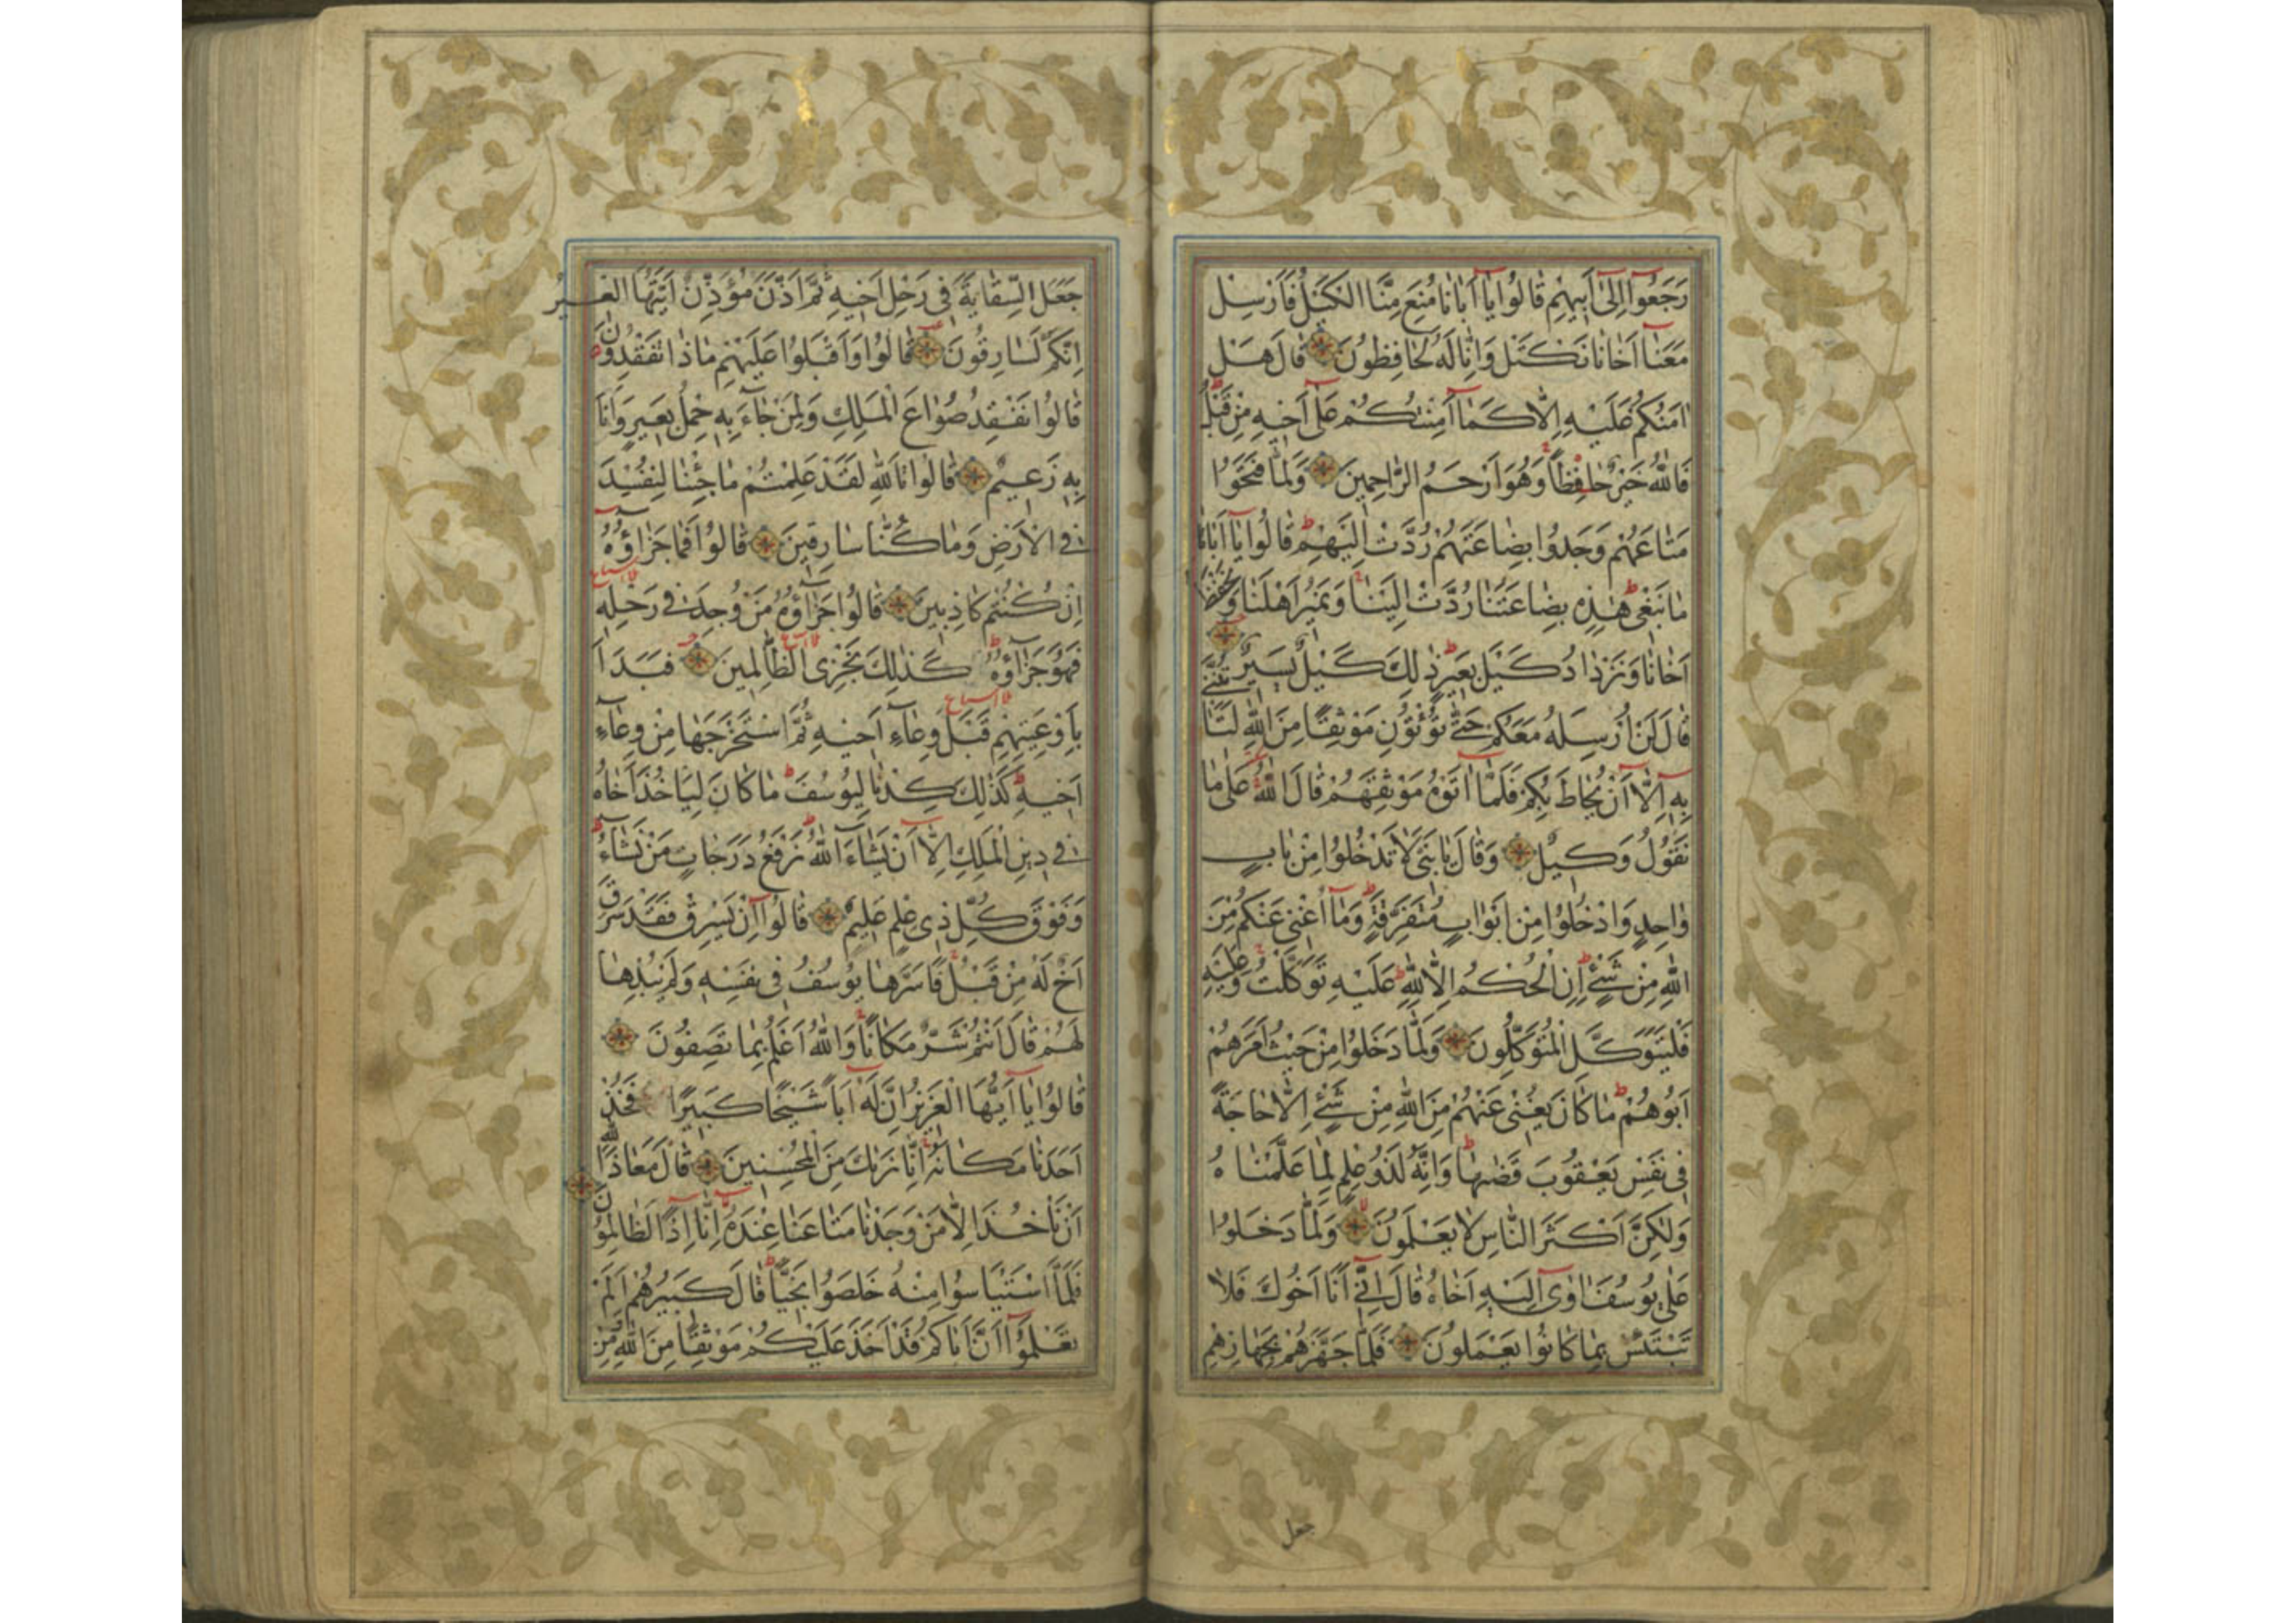 رَجَعُوا إِلَىٰ أَبِيهِمْ قَالُوا يَا أَبَانَا مُنِعَ مِنَّا الْكَيْلُ فَأَرْسِلْ
مَعَنَا أَخَانَا نَكْتَلْ وَإِنَّا لَهُ لَحَافِظُونَ قَالَ هَلْ
اٰمَنُكُمْ عَلَيْهِ إِلَّا كَمَا أَمِنْتُكُمْ عَلَىٰ أَخِيهِ مِنْ قَبْلُ
فَاللّٰهُ خَيْرٌ حَافِظًا وَهُوَ أَرْحَمُ الرَّاحِمِينَ وَلَمَّا فَتَحُوا
مَتَاعَهُمْ وَجَدُوا بِضَاعَتَهُمْ رُدَّتْ إِلَيْهِمْ قَالُوا يَا أَبَانَا
مَا نَبْغِي هٰذِهِ بِضَاعَتُنَا رُدَّتْ إِلَيْنَا وَنَمِيرُ أَهْلَنَا وَنَحْفَظُ
أَخَانَا وَنَزْدَادُ كَيْلَ بَعِيرٍ ذٰلِكَ كَيْلٌ يَسِيرٌ
قَالَ لَنْ أُرْسِلَهُ مَعَكُمْ حَتَّىٰ تُؤْتُونِ مَوْثِقًا مِنَ اللّٰهِ لَتَأْتُنَّنِي
بِهِ إِلَّا أَنْ يُحَاطَ بِكُمْ فَلَمَّا اٰتَوْهُ مَوْثِقَهُمْ قَالَ اللّٰهُ عَلَىٰ مَا
نَقُولُ وَكِيلٌ وَقَالَ يَا بَنِيَّ لَا تَدْخُلُوا مِنْ بَابٍ
وَاحِدٍ وَادْخُلُوا مِنْ أَبْوَابٍ مُتَفَرِّقَةٍ وَمَا أُغْنِي عَنْكُمْ مِنَ
اللّٰهِ مِنْ شَيْءٍ إِنِ الْحُكْمُ إِلَّا لِلّٰهِ عَلَيْهِ تَوَكَّلْتُ وَعَلَيْهِ
فَلْيَتَوَكَّلِ الْمُتَوَكِّلُونَ وَلَمَّا دَخَلُوا مِنْ حَيْثُ أَمَرَهُمْ
أَبُوهُمْ مَا كَانَ يُغْنِي عَنْهُمْ مِنَ اللّٰهِ مِنْ شَيْءٍ إِلَّا حَاجَةً
فِي نَفْسِ يَعْقُوبَ قَضٰىهَا وَإِنَّهُ لَذُو عِلْمٍ لِمَا عَلَّمْنَاهُ
وَلٰكِنَّ أَكْثَرَ النَّاسِ لَا يَعْلَمُونَ وَلَمَّا دَخَلُوا
عَلَىٰ يُوسُفَ اٰوَىٰ إِلَيْهِ أَخَاهُ قَالَ إِنِّي أَنَا أَخُوكَ فَلَا
تَبْتَئِسْ بِمَا كَانُوا يَعْمَلُونَ فَلَمَّا جَهَّزَهُمْ بِجَهَازِهِمْ
جعل
جَعَلَ السِّقَايَةَ فِي رَحْلِ أَخِيهِ ثُمَّ أَذَّنَ مُؤَذِّنٌ أَيَّتُهَا الْعِيرُ
إِنَّكُمْ لَسَارِقُونَ قَالُوا وَأَقْبَلُوا عَلَيْهِمْ مَاذَا تَفْقِدُونَ
قَالُوا نَفْقِدُ صُوَاعَ الْمَلِكِ وَلِمَنْ جَاءَ بِهِ حِمْلُ بَعِيرٍ وَأَنَا
بِهِ زَعِيمٌ قَالُوا تَاللّٰهِ لَقَدْ عَلِمْتُمْ مَا جِئْنَا لِنُفْسِدَ
فِي الْأَرْضِ وَمَا كُنَّا سَارِقِينَ قَالُوا فَمَا جَزَاؤُهُ
إِنْ كُنْتُمْ كَاذِبِينَ قَالُوا جَزَاؤُهُ مَنْ وُجِدَ فِي رَحْلِهِ
فَهُوَ جَزَاؤُهُ كَذٰلِكَ نَجْزِي الظَّالِمِينَ فَبَدَأَ
بِأَوْعِيَتِهِمْ قَبْلَ وِعَاءِ أَخِيهِ ثُمَّ اسْتَخْرَجَهَا مِنْ وِعَاءِ
أَخِيهِ كَذٰلِكَ كِدْنَا لِيُوسُفَ مَا كَانَ لِيَأْخُذَ أَخَاهُ
فِي دِينِ الْمَلِكِ إِلَّا أَنْ يَشَاءَ اللّٰهُ نَرْفَعُ دَرَجَاتٍ مَنْ نَشَاءُ
وَفَوْقَ كُلِّ ذِي عِلْمٍ عَلِيمٌ قَالُوا إِنْ يَسْرِقْ فَقَدْ سَرَقَ
أَخٌ لَهُ مِنْ قَبْلُ فَأَسَرَّهَا يُوسُفُ فِي نَفْسِهِ وَلَمْ يُبْدِهَا
لَهُمْ قَالَ أَنْتُمْ شَرٌّ مَكَانًا وَاللّٰهُ أَعْلَمُ بِمَا تَصِفُونَ
قَالُوا يَا أَيُّهَا الْعَزِيزُ إِنَّ لَهُ أَبًا شَيْخًا كَبِيرًا فَخُذْ
أَحَدَنَا مَكَانَهُ إِنَّا نَرَىٰكَ مِنَ الْمُحْسِنِينَ قَالَ مَعَاذَ اللّٰهِ
أَنْ نَأْخُذَ إِلَّا مَنْ وَجَدْنَا مَتَاعَنَا عِنْدَهُ إِنَّا إِذًا لَظَالِمُونَ
فَلَمَّا اسْتَيْأَسُوا مِنْهُ خَلَصُوا نَجِيًّا قَالَ كَبِيرُهُمْ أَلَمْ
تَعْلَمُوا أَنَّ أَبَاكُمْ قَدْ أَخَذَ عَلَيْكُمْ مَوْثِقًا مِنَ اللّٰهِ وَمِنْ